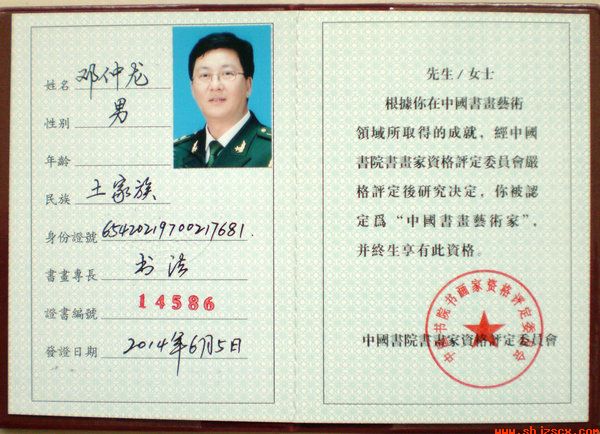 姓名 邓仲龙
性别 男
年龄
民族 土家族
身份證號 65420219700217681.
書畫專長 书法
證書編號 14586
發證日期 2014年6月5日
先生/女士
根據你在中國書畫藝術
領域所取得的成就，經中國
書院書畫家資格評定委員會嚴
格評定後研究决定，你被認
定爲“中國書畫藝術家”，
并終生享有此資格。
中國書院書畫家資格評定委員會
中國书院书画家资格評定委員会
www.shizscx.com